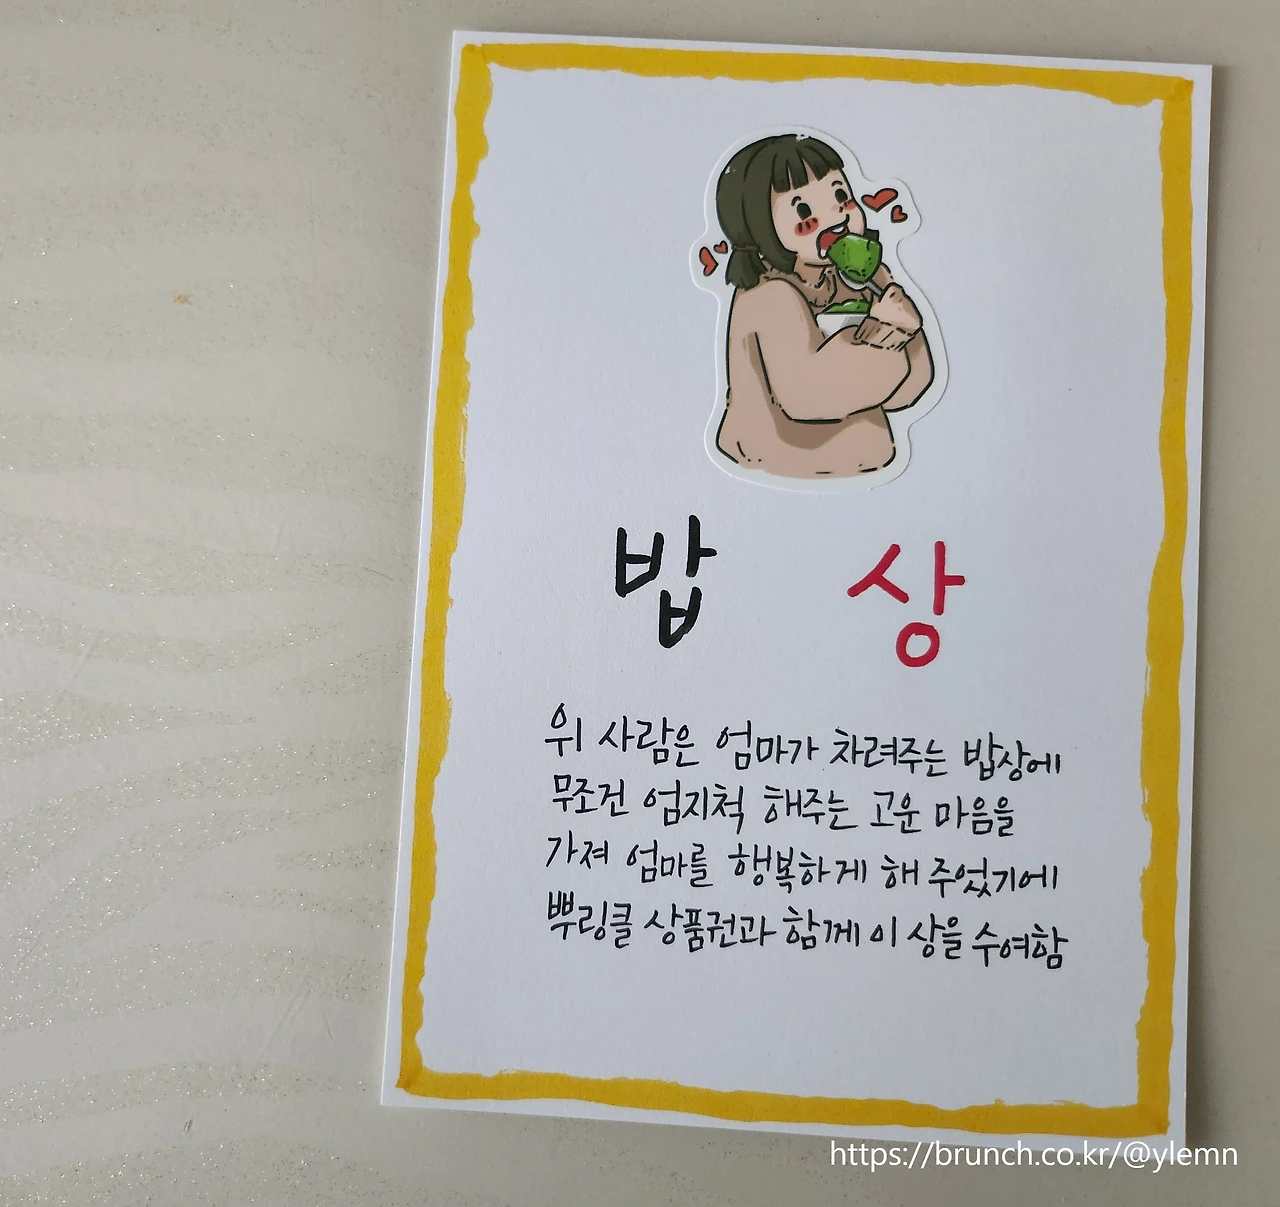 밥 상
위 사람은 엄마가 차려주는 밥상에
무조건 엄지척 해주는 고운 마음을
가져 엄마를 행복하게 해 주었기에
뿌링클 상품권과 함께 이 상을 수여함
https://brunch.co.kr/@ylemn